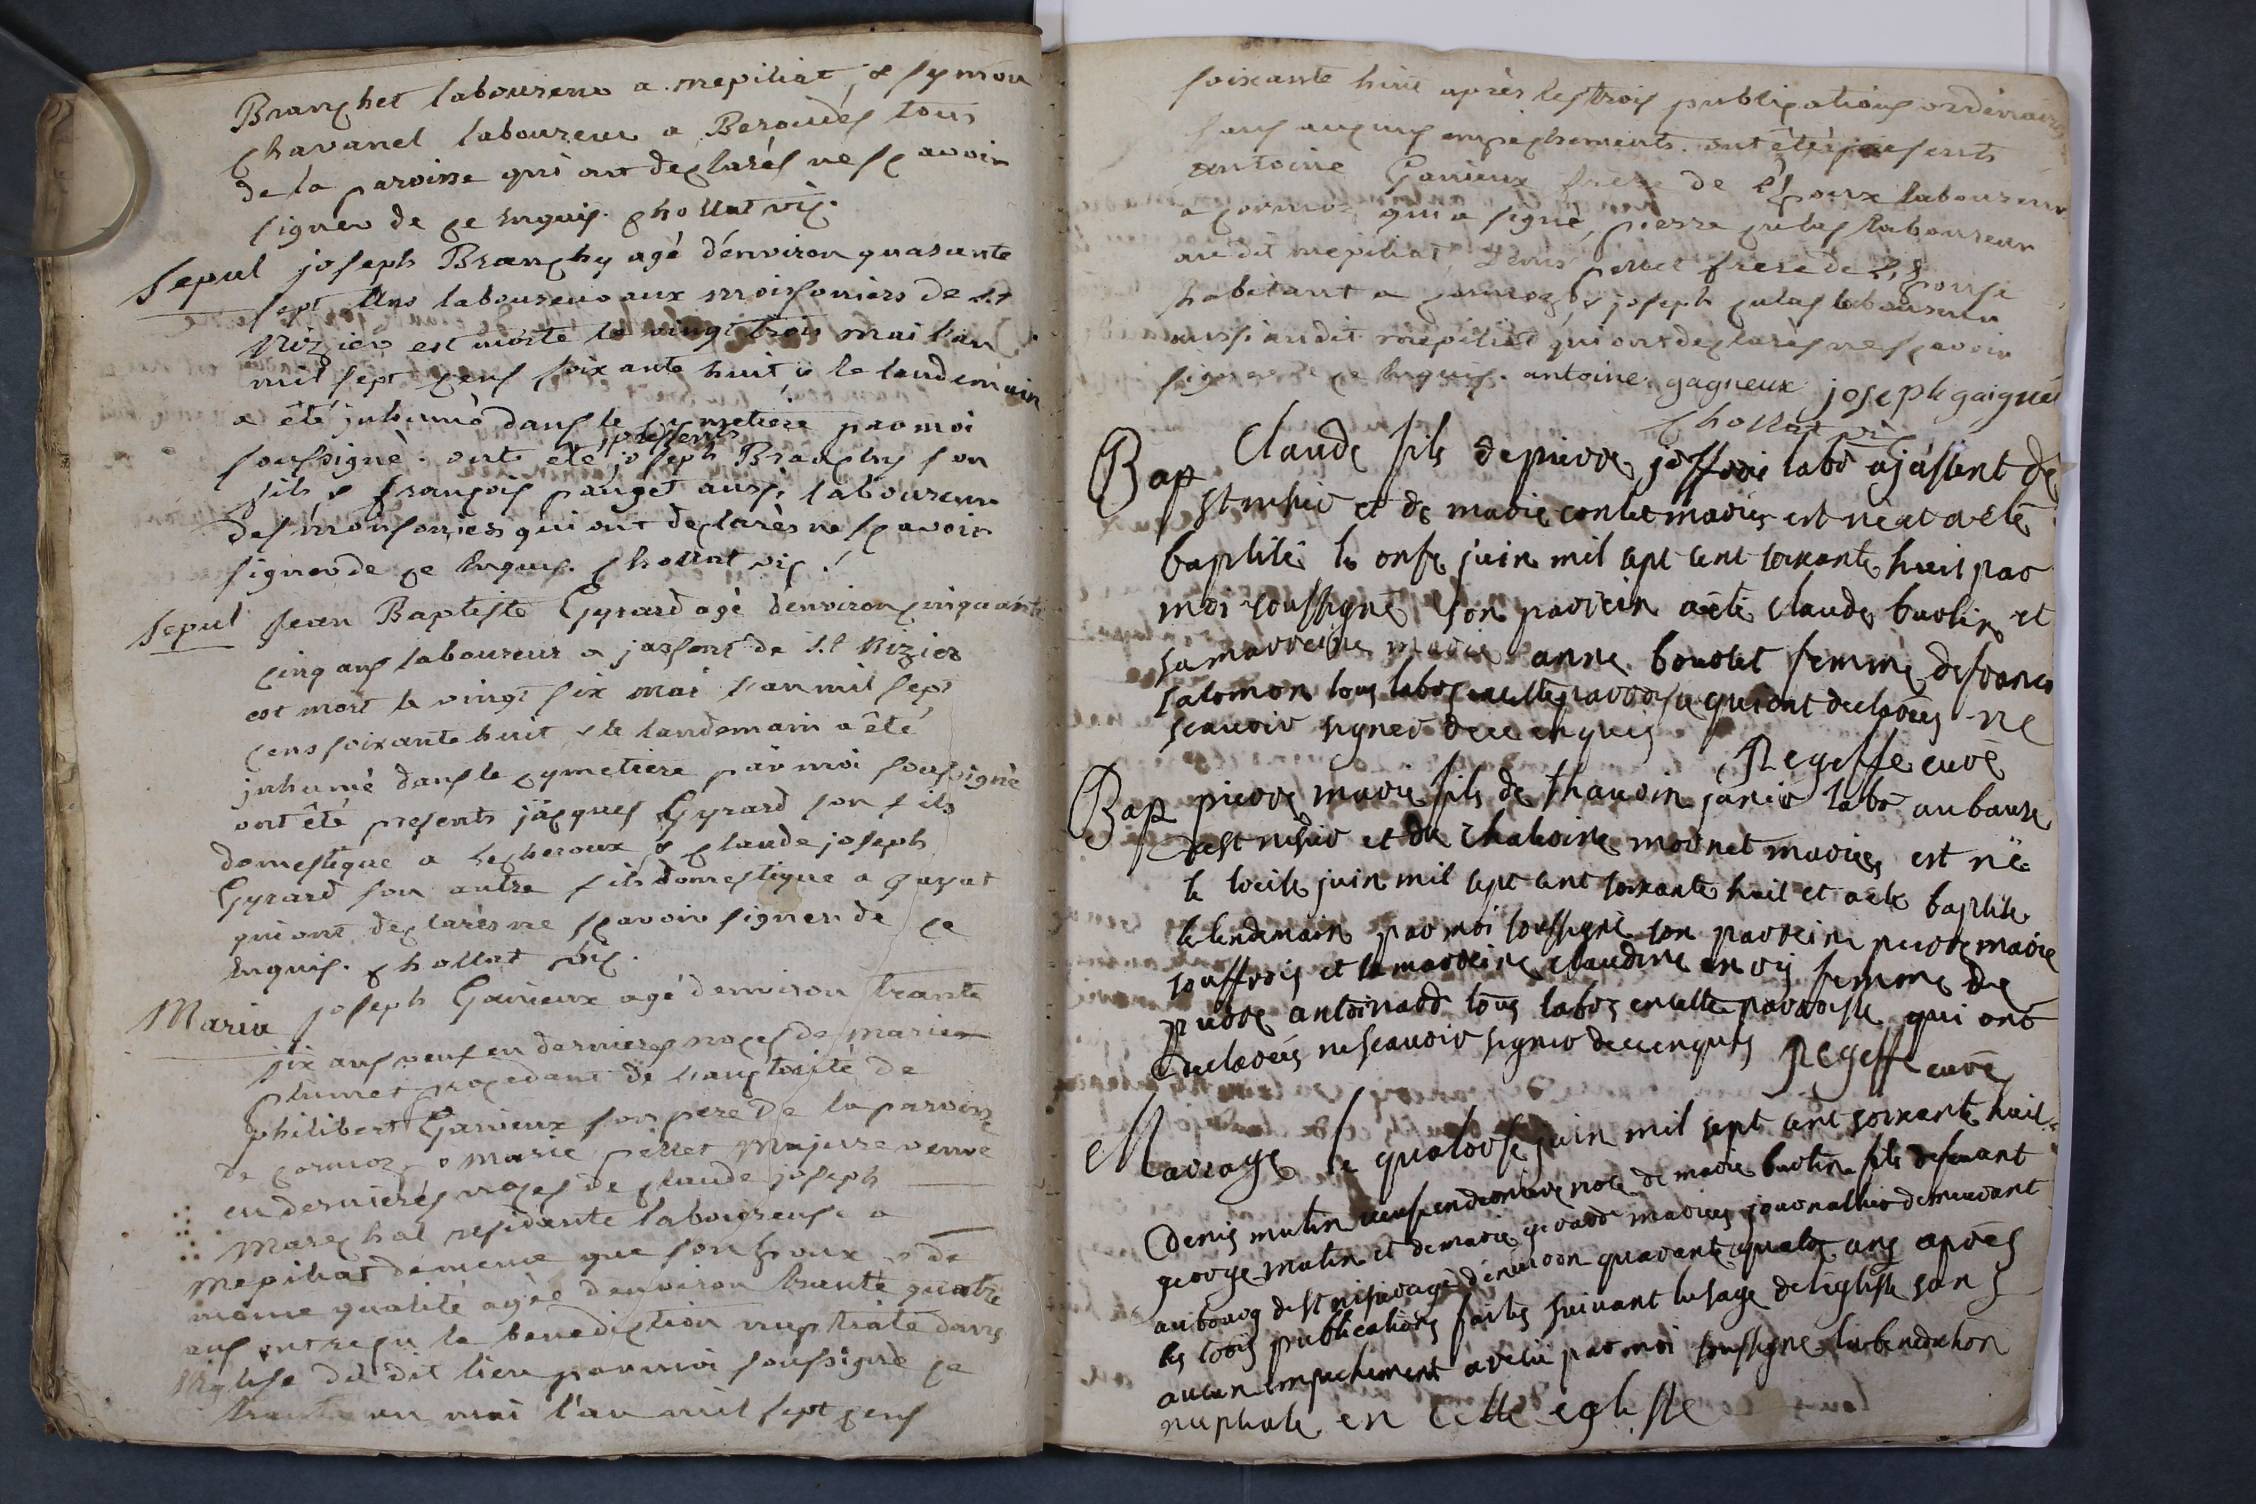 Branchet laboureur a mepiliat, & symon
Chavanel laboureur a Beroudés tous
de la paroisse qui ont declarés ne scavoir
signer de ce Enquis. Chollat vic.
Sepul joseph Branchy agé d'environ quarante
sept Ans laboureur aux moissonniers de st
Nizier est morte le vingt trois mai l'an
mil sept cens soixante huit & le landemain
a été inhumé dans le cymetiere par moi
soussigné. ont été presents joseph Branchy son
fils & françois pauget aussi laboureur
des moissonniers qui ont declarés ne scavoir
signer de ce Enquis. Chollat vic.
Sepul Jean Baptiste Gyrard agé d'environ cinquante
cinq ans laboureur a jassent de st Nizier
est mort le vingt six mai l'an mil sept
cens soixante huit & le landemain a été
inhumé dans le cymetiere par moi soussigné
ont été presents jacques Gyrard son fils
domestique a lecheroux & claude joseph
Gyrard son autre fils domestique a
qui ont declarés ne scavoir signer de ce
Enquis. Chollat vic.
Maria joseph Ganieux agé d'environ trante
six ans veuf en dernieres noces de marie
plumet procedant de l'auctorité de
philibert Ganieux son pere de la paroisse
de cormoz & Marie pellet Majeure veuve
en dernieres noces de claude joseph
Marechal residante laboureuse a
mepiliat de meme que son Epoux & de
même qualité agée d'environ trante quatre
ans ont reçu la benediction nuptiale dans
l'Eglise du dit lieu par moi soussigné ce
trante un mai l'an mil sept cens
soixante huit après les trois publications ordinaires
sans aucuns empechements. ont été presents
Antoine Ganieux frere de l'Epoux laboureur
a cormoz qui a signé, pierre laboureur
au dit mepiliat, Denis pellet frere de l'Epouse
habitant a cormoz, & joseph laboureur
aussi au dit mepiliat qui ont declarés ne scavoir
signer de ce Enquis. antoine gagneux joseph gaigneu
Chollat vic
Bap Claude fils de pierre joffroi labo a jassent de
st nisier et de marie mariés est né et a été
baptisé le onse juin mil sept cent soixante huit par
moi soussigné son parrein a été claude burtin et
sa marreine marie anne bouvlet femme de françois
salomon tous labos en cette parroisse qui ont declarés ne
scavoir signer de ce enquis Regeffe curé
Bap pierre marie fils de thauvin janin labo
de st nisier et de mornet mariés est né
le juin mil sept cent soixante huit et a été baptisé
le lendemain par moi soussigné son parrein pierre marie
jouffroi et la marreine claudine femme de
pierre antoinard tous labos en cette parroisse qui ont
declarés ne scavoir signer de ce enquis Regeffe curé
Mariage le quatorse juin mil sept cent soixante huit
Denis mutin veuf en derniere noce de marie burtin fils de feu
george mutin et de marie gerard mariés journallier demeurant
au bourg de st nisier agé d'environ quarante quatre ans après
les trois publications faites suivant l'usage de l'eglisse sans
aucun empechement a reçu par moi soussigné la benediction
nuptiale en cette eglisse